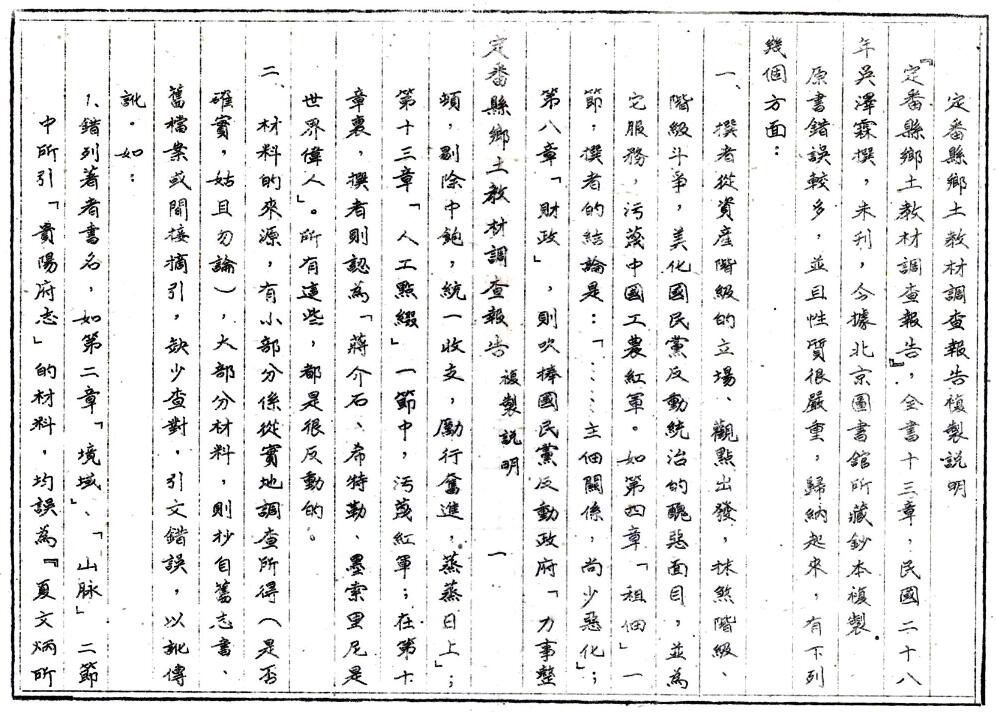 定番縣鄉土教材調查報告複製説明
『定番縣鄉土教材調查報告』，全書十三章，民國二十八
年吳澤霖撰，未刊，今據北京圖書館所藏鈔本複製。
原書錯誤較多，並且性質很嚴重，歸納起來，有下列
幾個方面：
一、撰者從資産階級的立場、觀點出發，抹煞階級、
階級斗爭，美化國民黨反動統治的醜惡面目，並為
它服務，污蔑中國工農紅軍。如第四章「租佃」一
節，撰者的結論是：「……主佃關係，尚少惡化」；
第八章「財政」，則吹捧國民黨反動政府「力事整
定番縣鄉土教材調查報告 複製説明 一
頓，剔除中飽，統一收支，勵行奮進，蒸蒸日上」；
第十三章「人工點綴」一節中，污蔑紅軍；在第十
章裏，撰者則認為「蔣介石、希特勒、墨索里尼是
世界偉人」。所有這些，都是很反動的。
二、材料的來源，有小部分係從實地調查所得（是否
確實，姑且勿論），大部分材料，則抄自舊志書、
舊檔案或間接摘引，缺少查對，引文錯誤，以訛傳
訛。如：
1、錯列著者書名，如第二章「境域」、「山脉」二節
中所引「貴陽府志」的材料，均誤為『夏文炳所